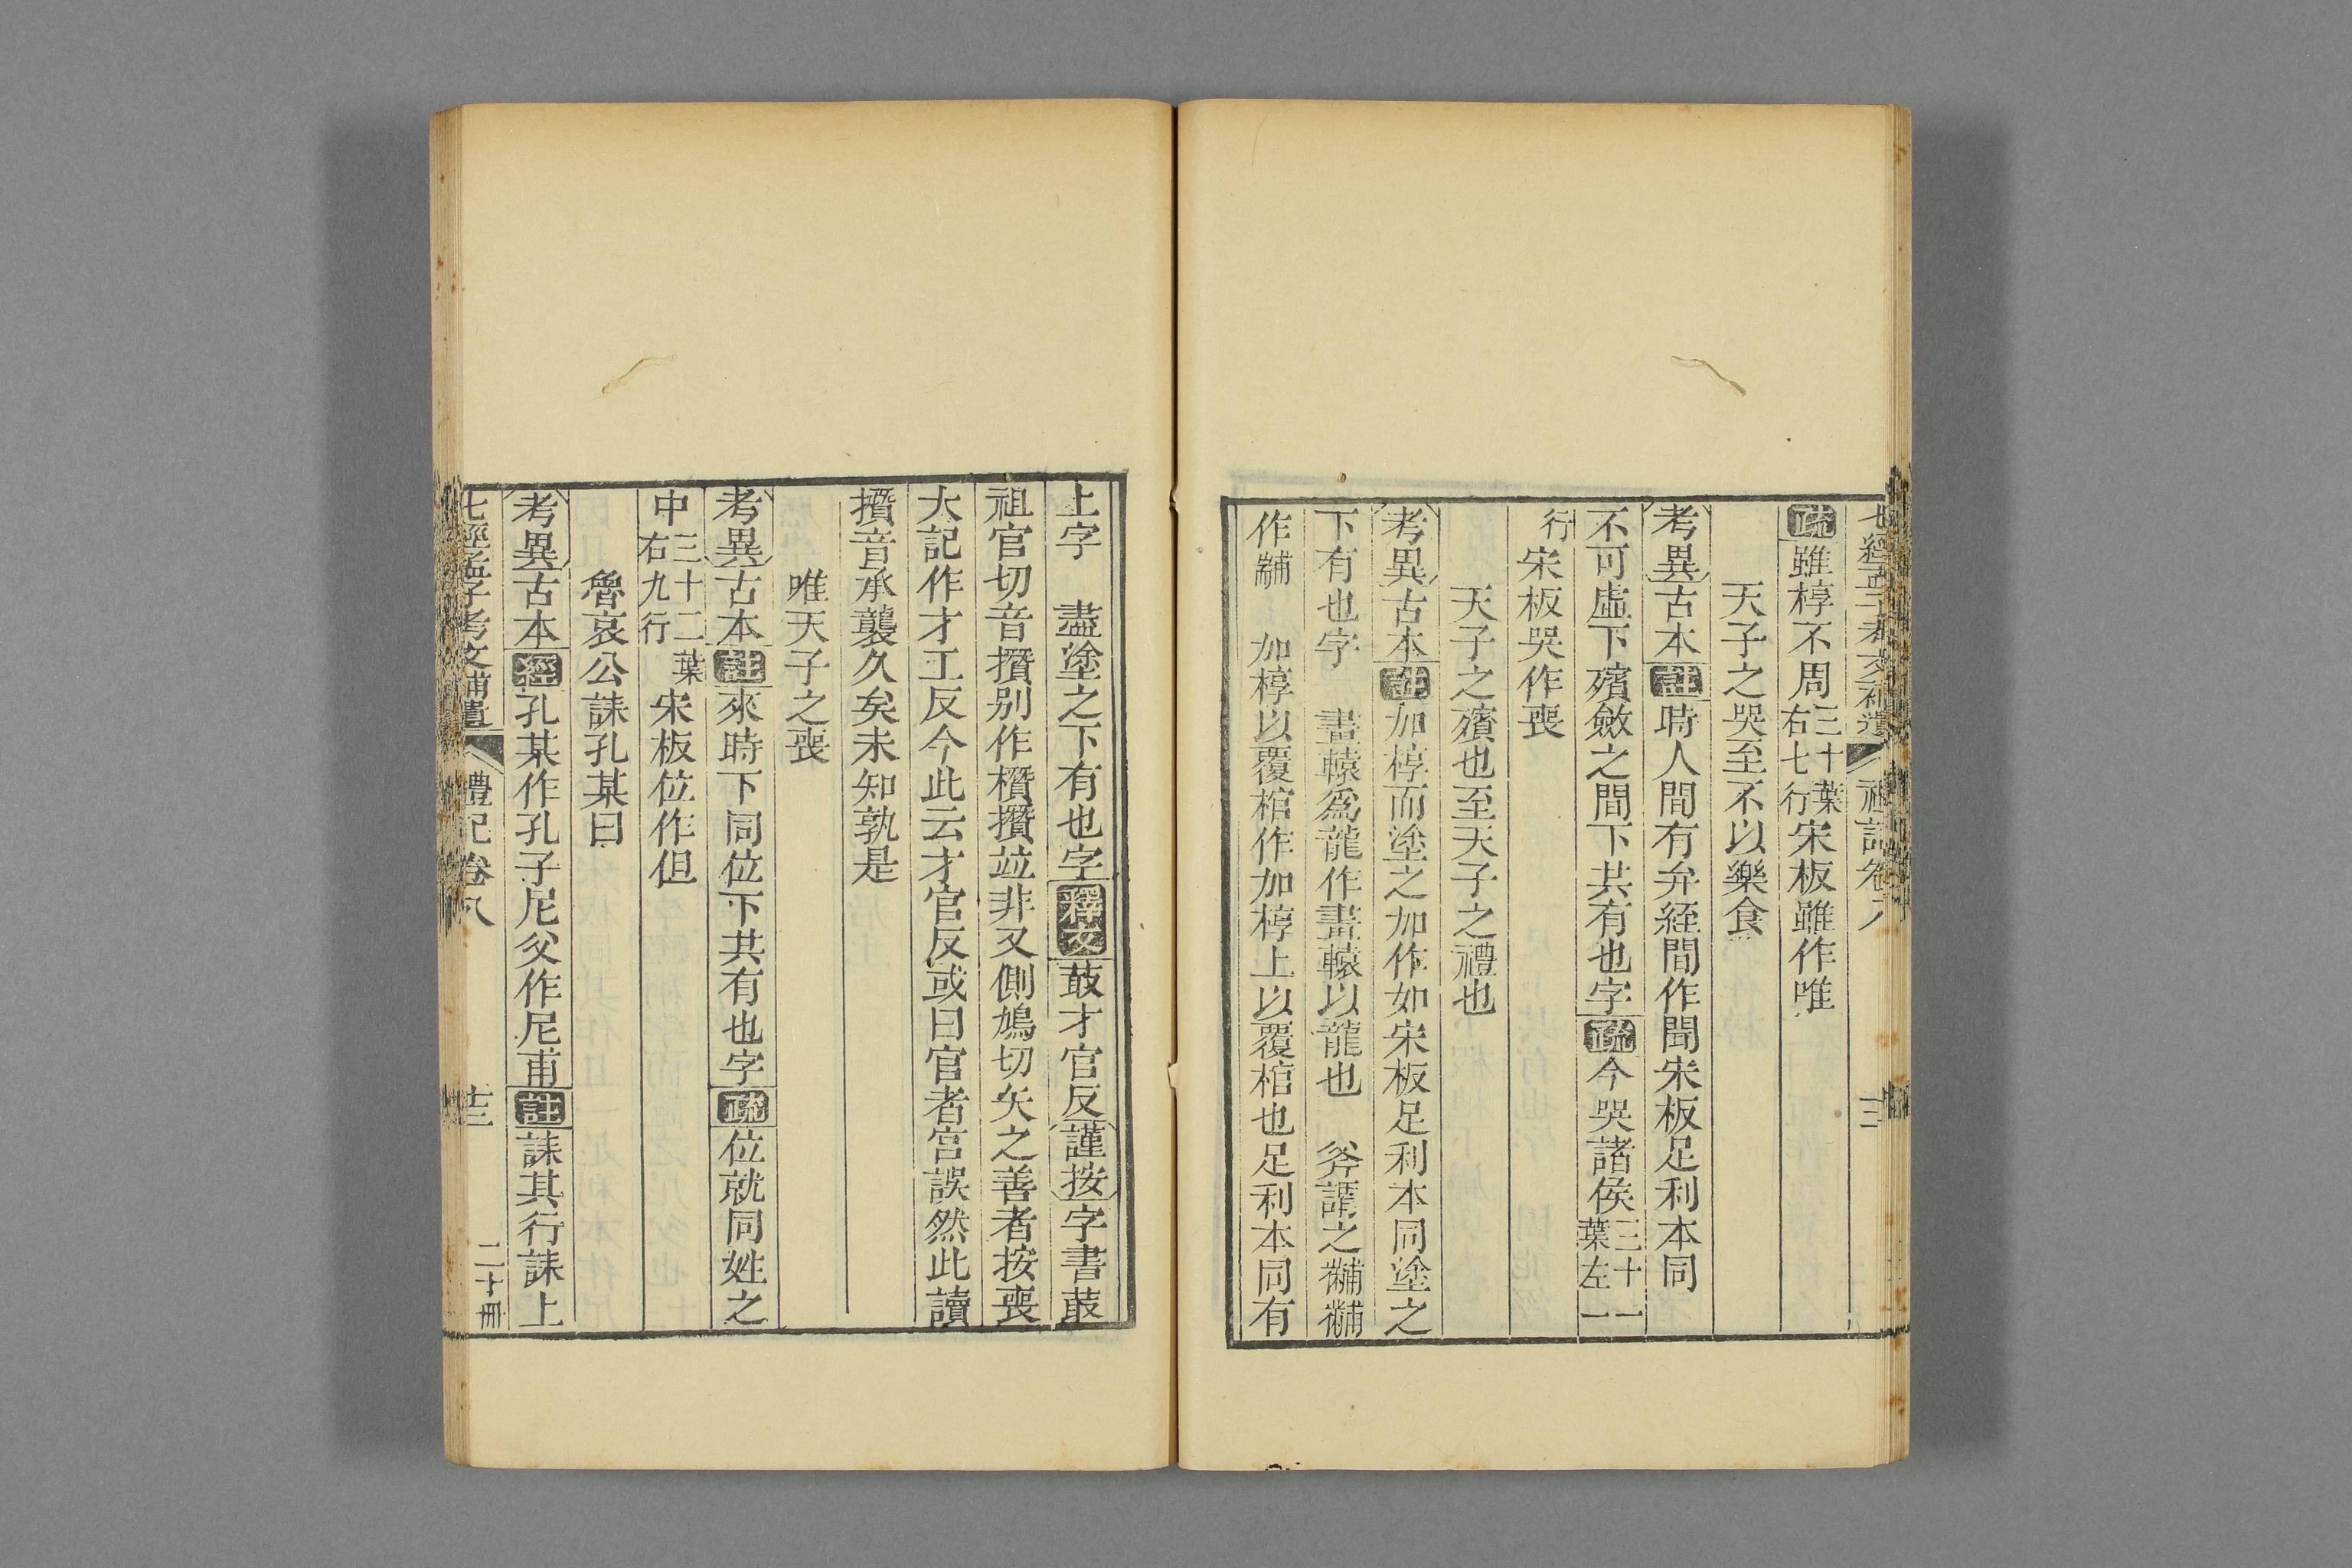 疏雖椁不周三十葉右七行宋板雖作唯
天子之哭至不以樂食
考異古本註時人間有弁絰間作聞宋板足利本同
不可虛下殯斂之間下共有也字疏今哭諸侯三十一葉左一
行宋板哭作喪
天子之殯也至天子之禮也
考異古本註加椁而塗之加作如宋板足利本同塗之
下有也字 畫轅爲龍作畫轅以龍也 斧謂之黼黼
作黼 加椁以覆棺作加椁上以覆棺也足利本同有
上字 盡塗之下有也字釋文菆才官反謹按字書菆
祖官切音攢别作欑攢竝非又側鳩切矢之善者按喪
大記作才工反今此云才官反或曰官者宫誤然此讀
攢音承襲久矣未知孰是
唯天子之喪
考異古本註來時下同位下共有也字疏位就同姓之
中三十二葉右九行宋板位作但
魯哀公誄孔某曰
考異古本經孔某作孔子尼父作尼甫註誄其行誄上
七經孟子考文補遺 禮記卷八 十三 二十冊